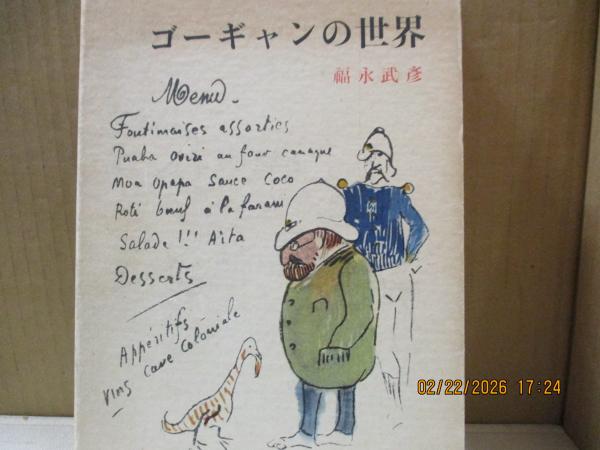 ゴーギャンの世界
福永武彦
Menu
Foutimaises assorties
Puaba Oviri au four canaque
Moa Opapa Sauce Coco
Roti bœuf à la farani
Salade !!! Aïta
Desserts
Appéritifs
Vins cave coloniale
02/22/2026 17:24